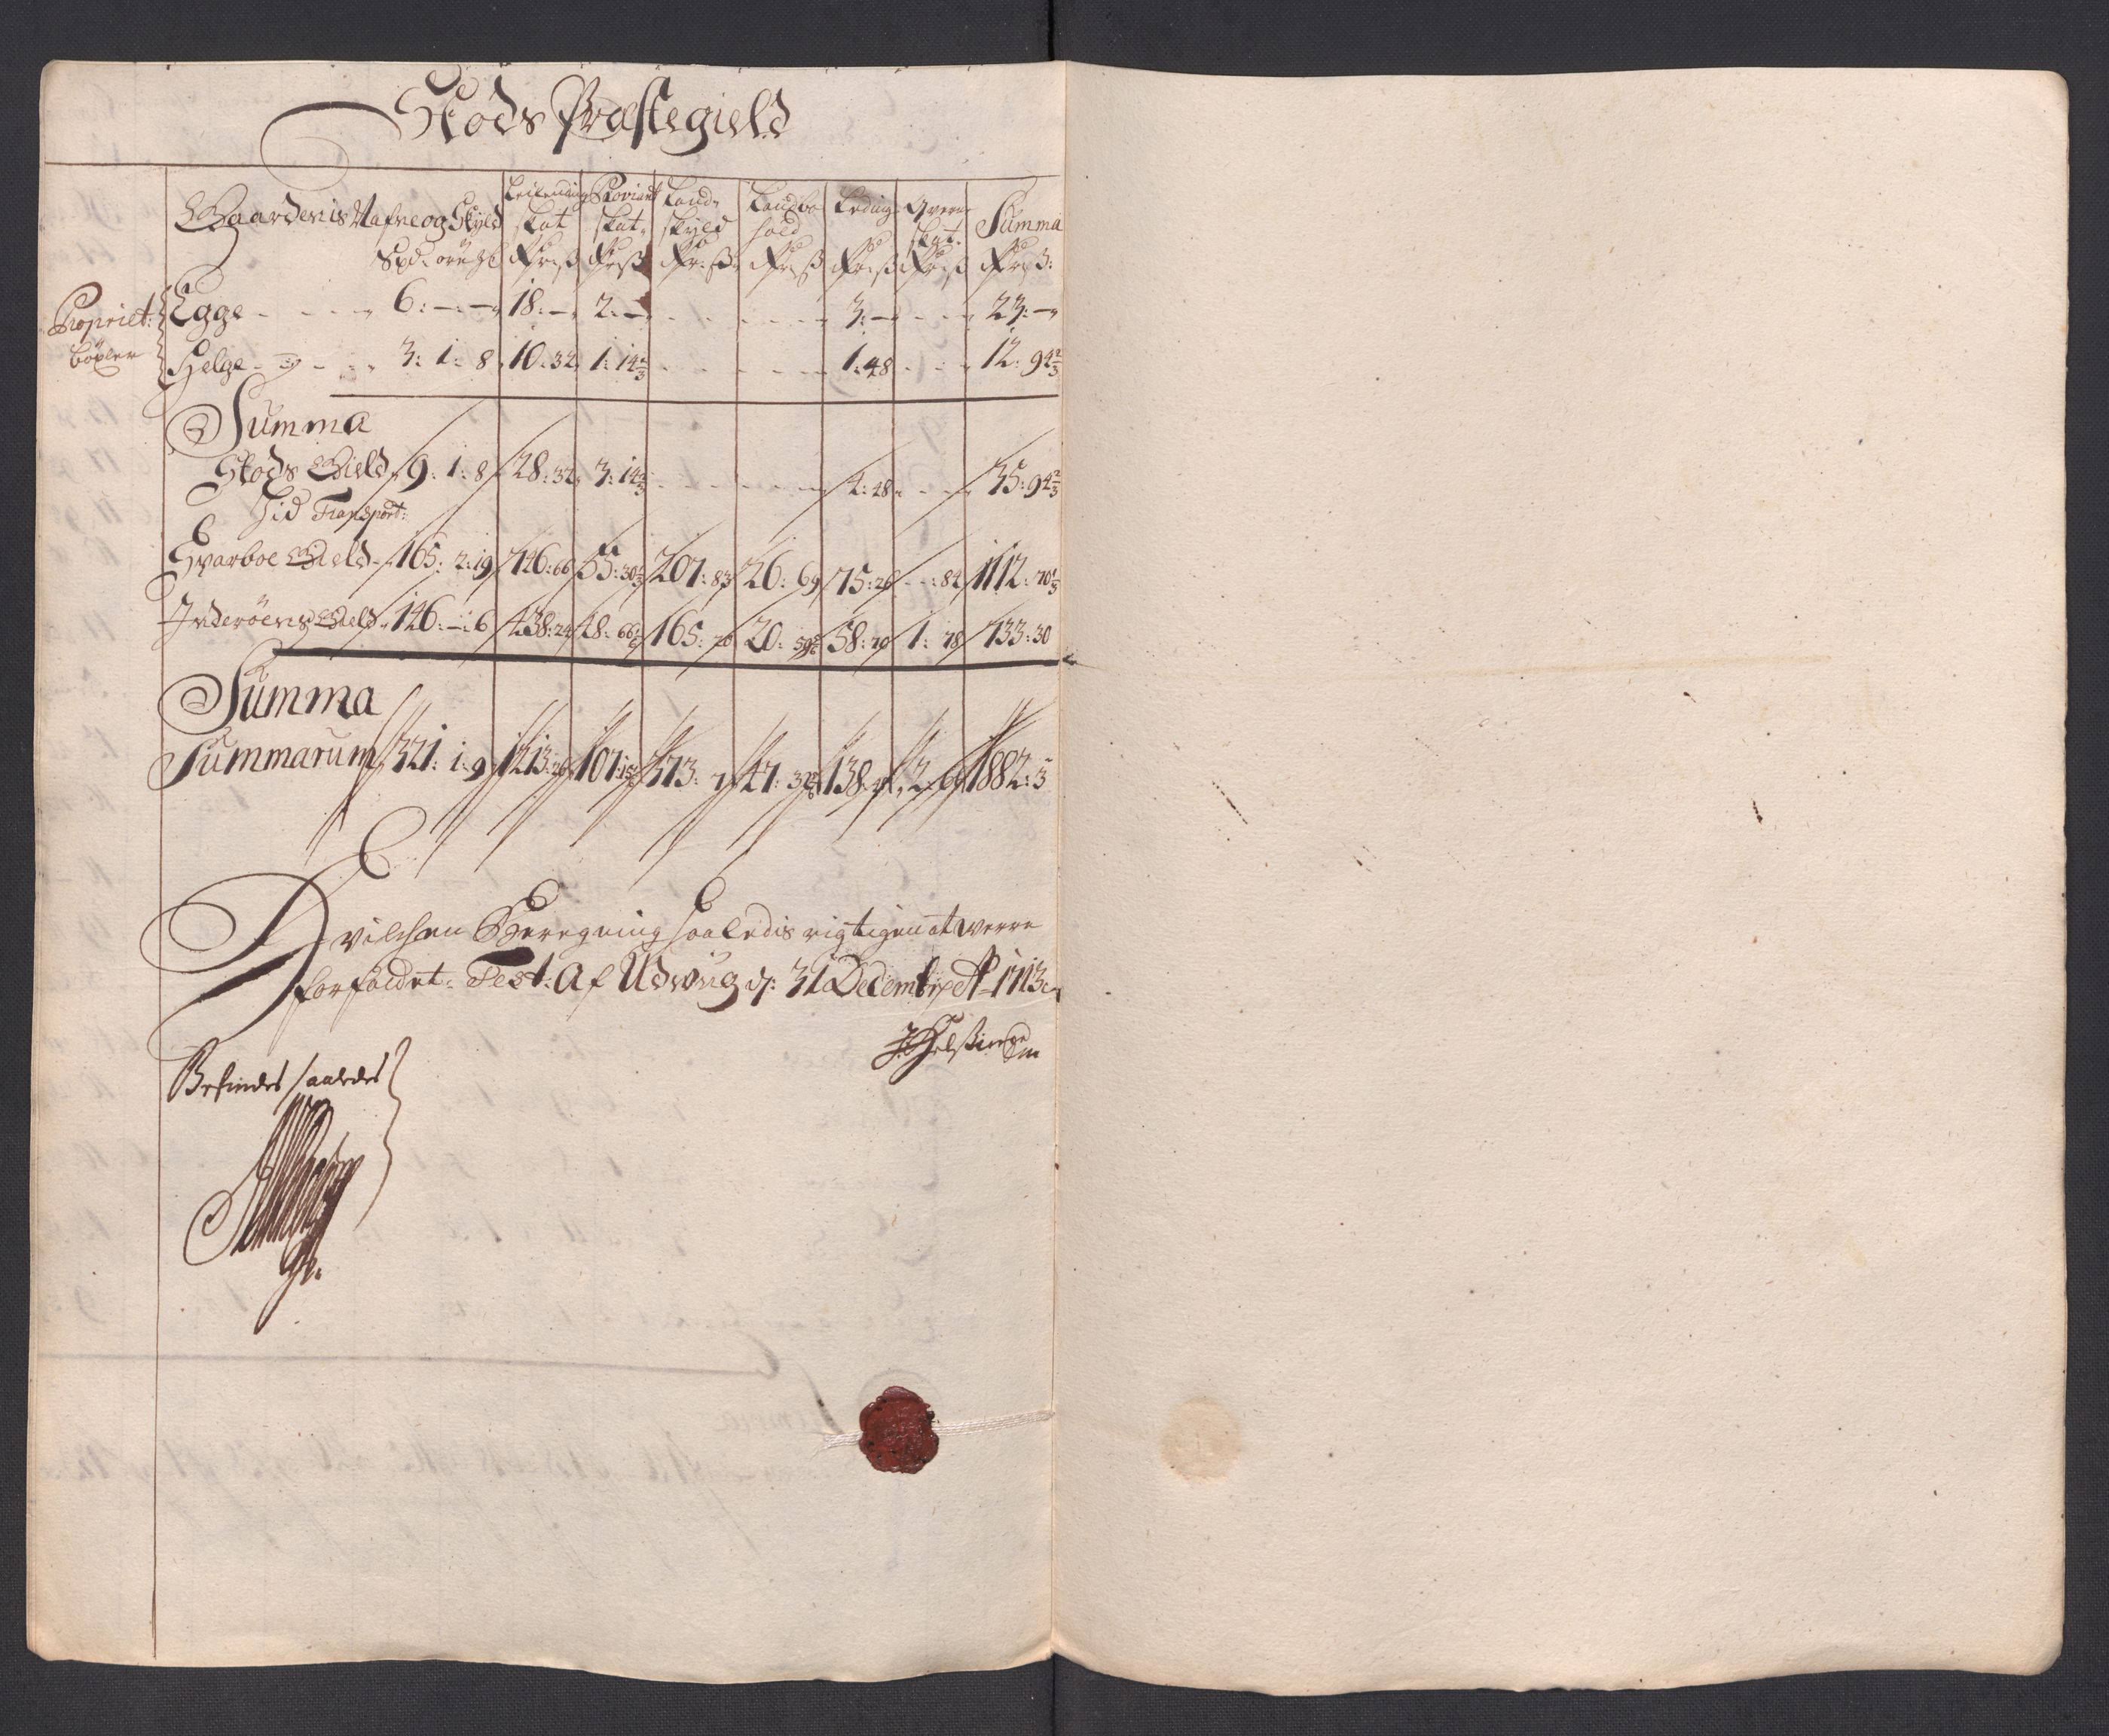 Stods Præstegield
Gaardenis Nafne og Skyld Leilendings skat Proviant skat Land skyld Landbo hold Leding Qvern skat Summa
Spd: ore: gl Rdr ß Rdr ß Rdr ß Rdr ß Rdr ß Rdr ß Rdr ß
Propriet: Egge 6: — — 18: — 2: — 3: — 23: —
Helge 3: 1: 8 10: 32 1: 14 2/3 1: 48 12: 94 2/3
Summa
Stods Gield 9: 1: 8 28: 32 3: 14 2/3 4: 48 35: 94 2/3
Hid Transport:
Sparboe Gield 165: 2: 19 746: 66 55: 30 207: 83 26: 69 75: 26 - : 84 1112: 70 1/3
Inderöens Gield 146: — : 6 438: 24 48: 66 165: 20: 58: 1: 78 733: 30
Summa
Summarum 321: 1: 9 1213: 26 107: 373: 7 47: 138: 2: 1882: 3
Hvilchen Beregning saaledis rigtigen at werre
forfaldet. Test: Af Udvug d: 31 Decembr Ao 1713
Befindes saaledes